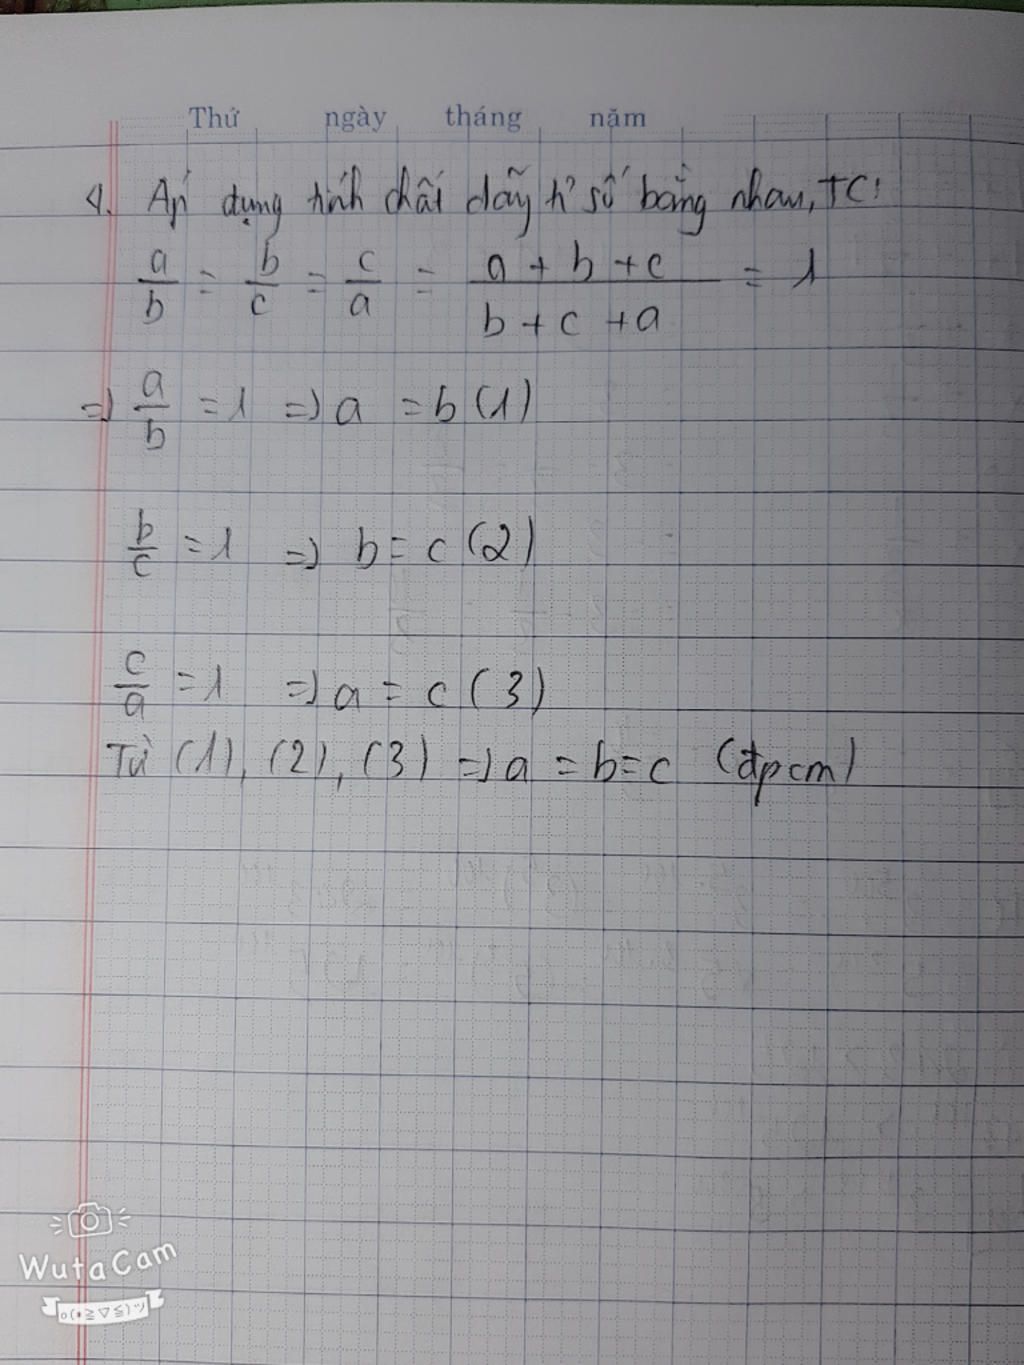 Thứ ngày tháng năm
4. Áp dụng tính chất dãy tỉ số bằng nhau, TC:
a/b = b/c = c/a = (a + b + c)/(b + c + a) = 1
=> a/b = 1 => a = b (1)
b/c = 1 => b = c (2)
c/a = 1 => a = c (3)
Từ (1), (2), (3) => a = b = c (đpcm)
WutaCam
o(•≧▽≦)ツ